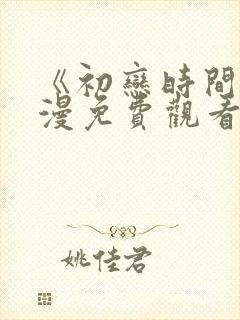 《初戀時間
漫免費觀看
姚佳君